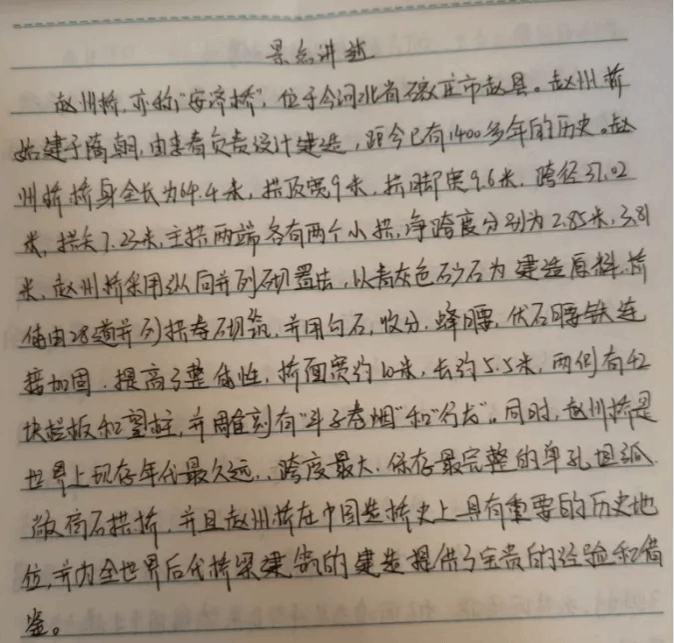 景点讲述
赵州桥,亦称"安济桥",位于今河北省石家庄市赵县。赵州桥
始建于隋朝,由李春负责设计建造,距今已有1400多年的历史。赵
州桥桥身全长为64.4米,拱顶宽9米,拱脚宽9.6米,跨径37.02
米,拱矢7.23米,主拱两端各有两个小拱,净跨度分别为2.85米,3.81
米,赵州桥采用纵向并列砌置法,以青灰色砂石为建造原料,桥
体由28道并列拱券砌筑,并用勾石,收分,蜂腰,伏石腰铁连
接加固,提高了整体性,桥面宽约10米,长约5.5米,两侧有42
块栏板和望柱,并雕刻有"斗子卷烟"和"行龙"。同时,赵州桥是
世界上现存年代最久远、跨度最大、保存最完整的单孔坦弧
敞肩石拱桥,并且赵州桥在中国造桥史上具有重要的历史地
位,并为全世界后代桥梁建筑的建造提供了宝贵的经验和借
鉴。